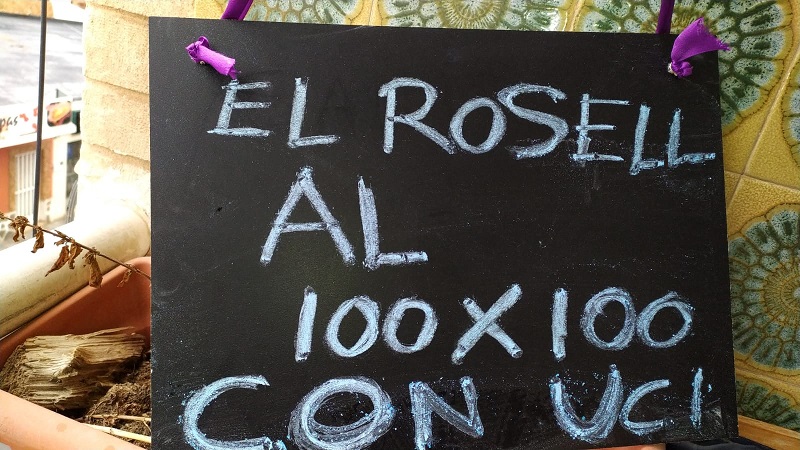 EL ROSELL
AL
100X100
CON UCI